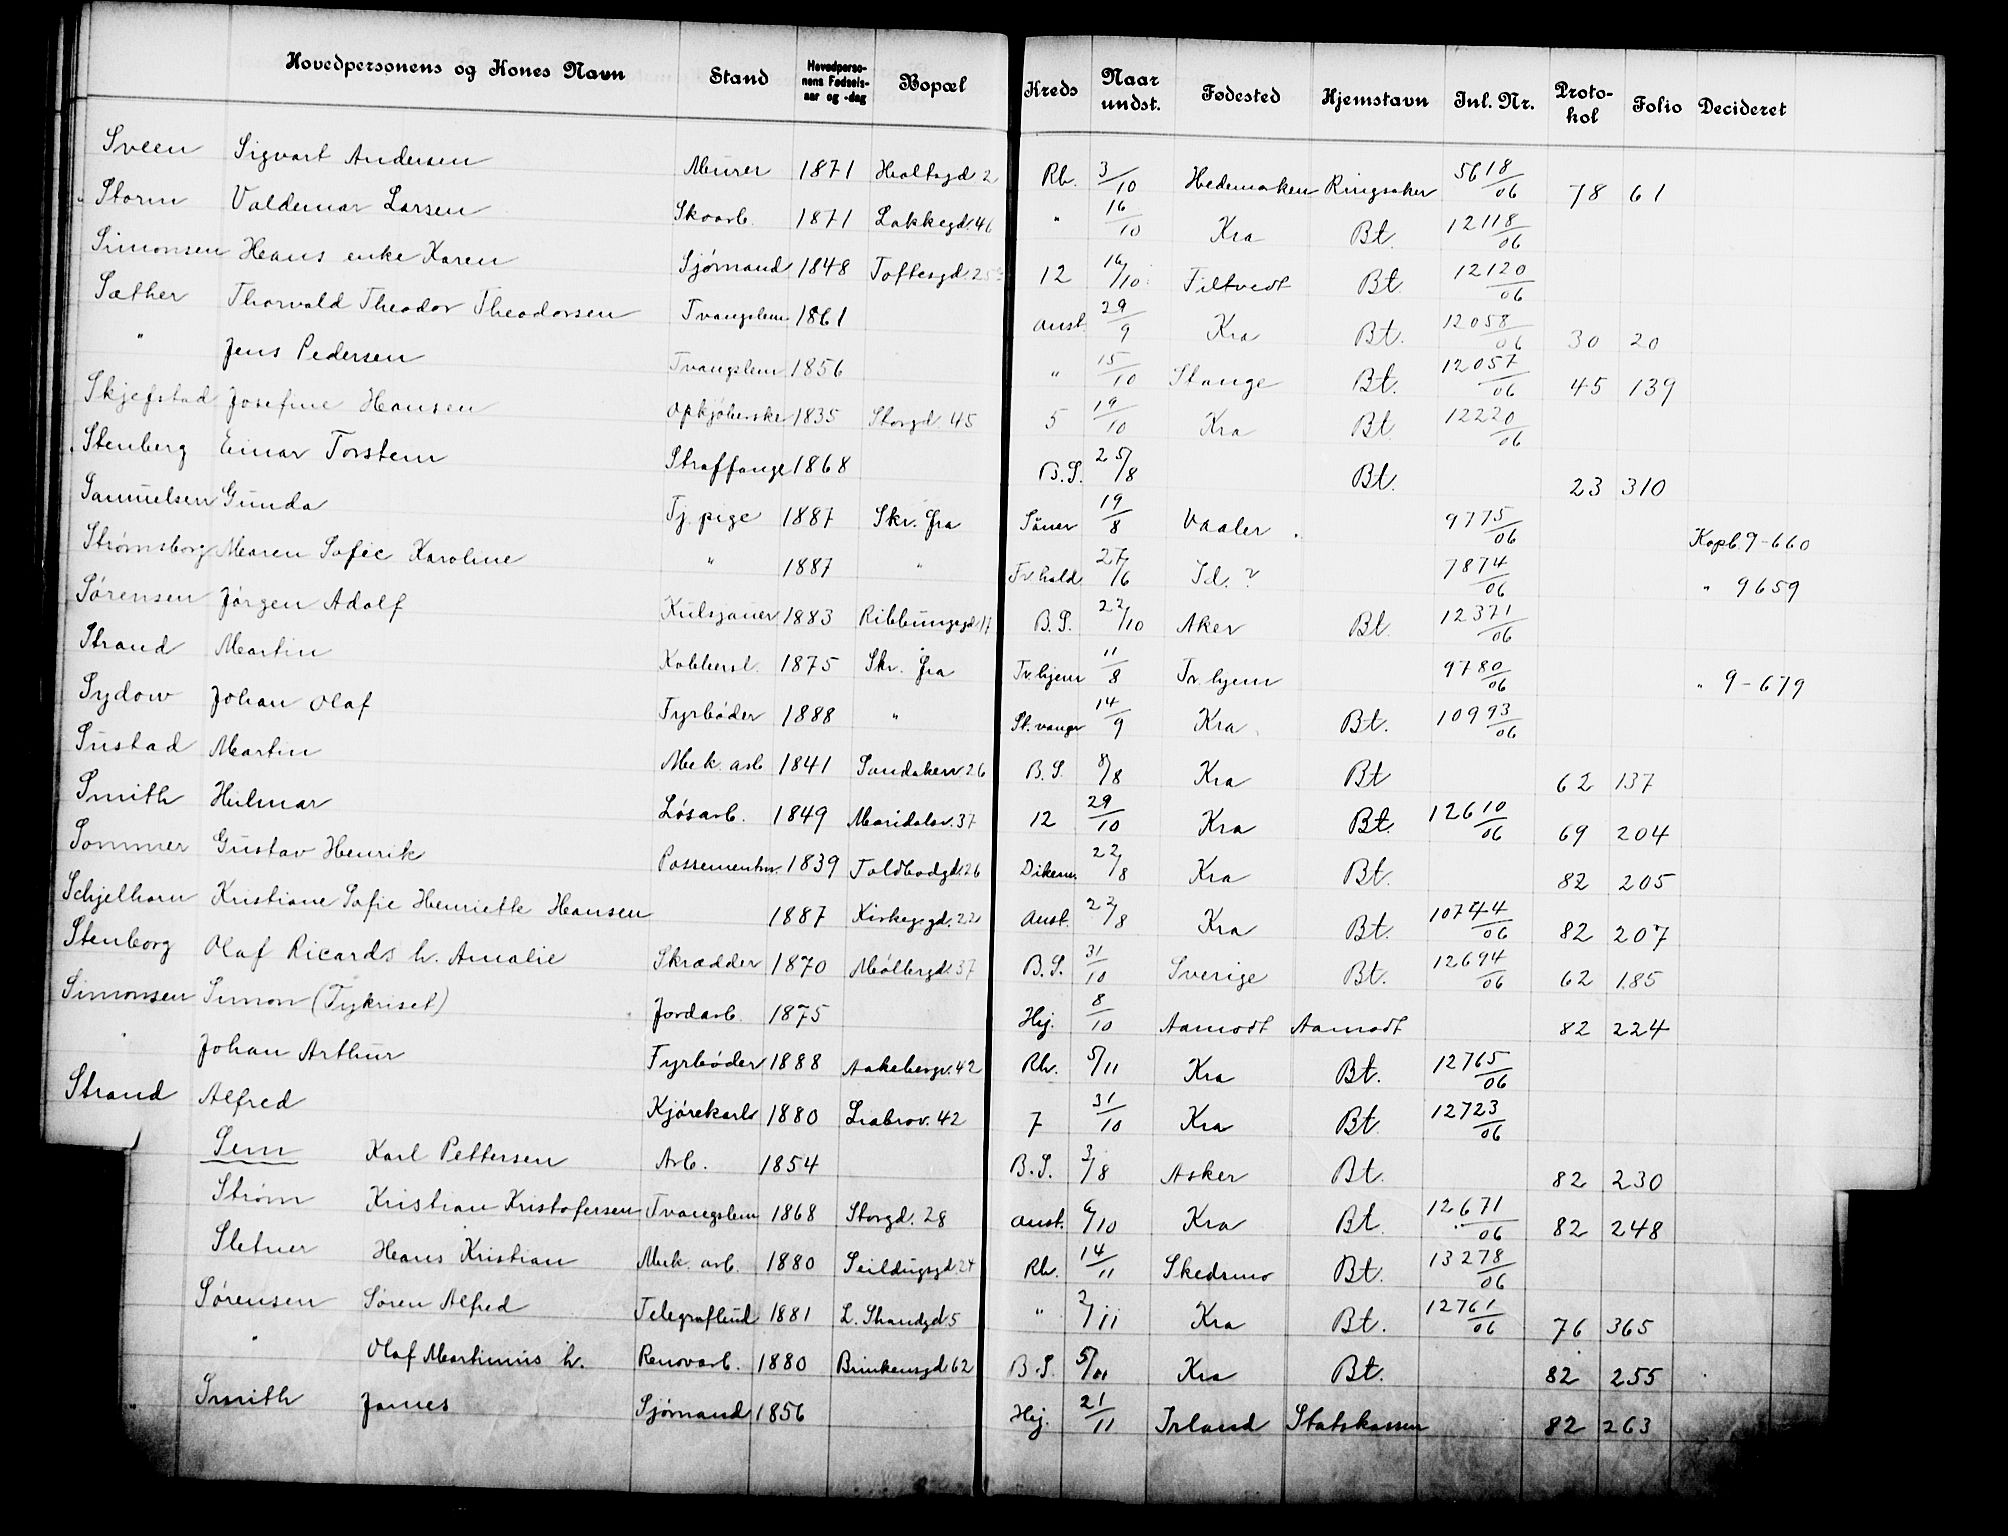 Hovedpersonens og Kones Navn Stand Hovedperso-nens Fødsels-aar og -dag Bopæl Kreds Naar undst. Fødested Hjemstavn Inl. Nr. Proto-kol Folio Decideret
Sveen Sigvart Andersen Murer 1871 Holtsgd 2 Rh. 3/10 Hedemarken Ringsaker 5618/06 78 61
Storm Valdemar Larsen Skoarb. 1871 Lakkegd. 46 " 16/10 Kra Bt. 12118/06
Simonsen Hans enke Karen Sjømand 1848 Toftesgd 25 12 16/10 Filtvedt Bt. 12120/06
Sæther Thorvald Theodor Theodorsen Tvangslem 1861 Anst. 29/9 Kra Bt. 12058/06 30 20
" Jens Pedersen Tvangslem 1856 " 15/10 Stange Bt. 12057/06 45 139
Skjefstad Josefine Hansen Opkjøberske 1835 Storgd. 45 5 19/10 Kra Bt 12220/06
Stenberg Einar Torstein Straffange 1868 B.S. 25/8 Bt. 23 310
Samuelsen Gunda Tj. pige 1887 Skr. fra Såner 19/8 Vaaler 9775/06 Kopb. 9-660
Strømsborg Maren Sofie Karoline " 1887 " Fr.hald 27/6 Id. ? 7874/06 " 9659
Sørensen Jørgen Adolf Kulsjauer 1883 Ribbungsgd 17 B.S. 22/10 Aker Bt. 12371/06
Strand Martin Kobberst. 1875 Skr. fra Tr.hjem 11/8 Tr.hjem 9780/06 " 9-679
Sydow Johan Olaf Fyrbøder 1888 " St.vangr 14/9 Kra Bt. 10993/06
Sustad Martin Mek. arb 1841 Sandakerv. 26 B.S. 8/8 Kra Bt 62 137
Smith Hilmar Løsarb. 1849 Maridalsv. 37 12 29/10 Kra Bt. 12610/06 69 204
Sommer Gustav Henrik Possementm. 1839 Toldbodgd. 26 Dikem. 22/8 Kra Bt. 82 205
Schjelhorn Kristiane Sofie Henriette Hansen 1887 Kirkegd. 22 Anst. 22/8 Kra Bt. 10744/06 82 207
Stenborg Olaf Ricards h. Amalie Skrædder 1870 Møllergd. 37 B.S. 31/10 Sverige Bt. 12694/06 62 185
Simonsen Simon (Tykriset) Jordarb. 1875 Hej. 8/10 Aamodt Aamodt 82 224
" Johan Arthur Fyrbøder 1888 Aakebergv. 42 Rh. 5/11 Kra Bt. 12765/06
Strand Alfred Kjørekarl 1880 Liabrov. 42 7 31/10 Kra Bt. 12723/06
Sem Karl Pettersen Arb. 1854 B.S. 3/8 Asker Bt. 82 230
Strøm Kristian Kristofersen Tvangslem 1868 Storgd. 28 Anst. 6/10 Kra Bt. 12671/06 82 248
Sletner Hans Kristian Mek. arb. 1880 Seildugsgd 24 Rh. 14/11 Skedsmo Bt. 13278/06
Sørensen Søren Alfred Telegrafbud 1881 L. Strandgd 5 " 2/11 Kra Bt. 12761/06 76 365
" Olaf Martinius h. Renovarb. 1880 Brinkensgd 62 B.S. 5/11 Kra Bt. 82 255
Smith James Sjømand 1856 Hej. 21/11 Irland Statskassen 82 263